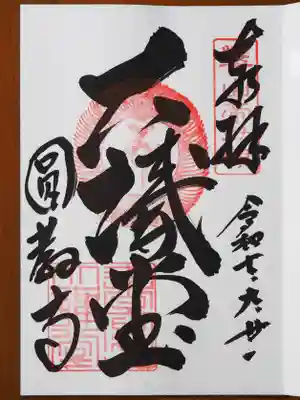 奉拝
令和七.九.廿一
大講堂
圓教寺